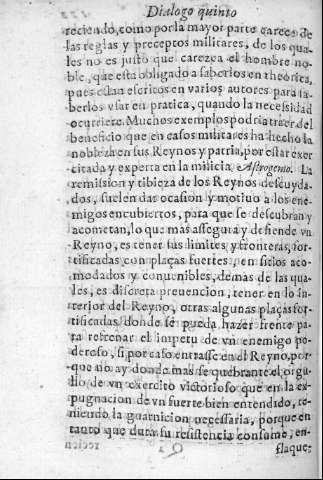 Dialogo quinto
reciendo, como por la mayor parte carece de
las reglas y preceptos militares, de los qua-
les no es justo que carezca el hombre no-
ble, que esta obligado a saberlos en theorica,
pues estan escritos en varios autores para sa-
berlos vsar en pratica, quando la necessidad
ocurriere. Muchos exemplos podria traer del
beneficio que en casos militares ha hecho la
nobleza en sus Reynos y patria, por estar exer
citada y experta en la milicia. Astrogenio. La
remission y tibieza de los Reynos descuyda-
dos, suelen das ocasion y motiuo a los ene-
migos encubiertos, para que se descubran y
acometan, lo que mas assegura y defiende vn
Reyno, es tener sus limites y fronteras, for-
tificadas con plaças fuertes, en sitios aco-
modados y conuenibles, demas de las qua-
les, es discreta preuencion, tener en lo in-
terior del Reyno, otras algunas plaças for-
tificadas, donde se pueda hazer frente pa-
ra refrenar el impetu de vn enemigo po-
deroso, si por caso entrasse en el Reyno, por-
que no ay donde mas se quebrante el orgu-
llo de vn exercito victorioso que en la ex-
pugnacion de vn fuerte bien entendido, te-
niendo la guarnicion necessaria, porque en
tanto que dura su resistencia consume, en-
flaque-